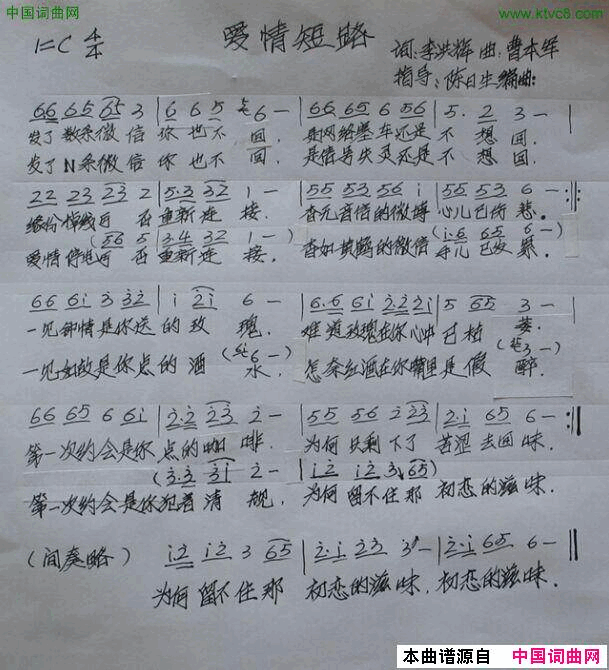 中国词曲网
www.ktvc8.com
1=C 4/4 爱情短路 词:李洪辉 曲:曹本军
指导:陈日生 编曲:
66 65 65 3 | 6 6 5 6 - | 66 65 6 56 | 5. 2 3 - |
发了数条微信你也不回. 是网络塞车还是不想回.
发了N条微信你也不回. 是信号失灵还是不想回.
22 23 23 2 | 5·3 32 1 - | 55 53 56 i | 55 53 6 - :||
缘份掉线 再重新连接. 杳无音信的微博心儿已伤悲.
(56 5 | 3·4 32 1 -) (i·6 65 6 -)
爱情停电 再重新连接. 杳如黄鹤的微信 儿已发
66 6i 3 32 | i 2i 6 - | 6·6 6i 2·2 2i | 5 65 3 - |
一见钟情是你送的玫瑰. 难道玫瑰在你心中已枯萎.
一见如故是你点的酒水. 怎奈红酒在你嘴里是假醉.
66 65 6 6i | 2·2 23 2 - | 55 56 2 23 | 2·i 65 6 - :||
第一次约会是你点的咖啡. 为何只剩下了苦涩去回味.
(3·3 3i 2 - | i2 i2 3 65)
第一次约会是你犯着清规. 为何留不住那初恋的滋味.
(间奏略) i2 i2 3 65 | 2·i 23 3 - | 2·i 65 6 - ||
为何留不住那 初恋的滋味. 初恋的滋味.
本曲谱源自 中国词曲网